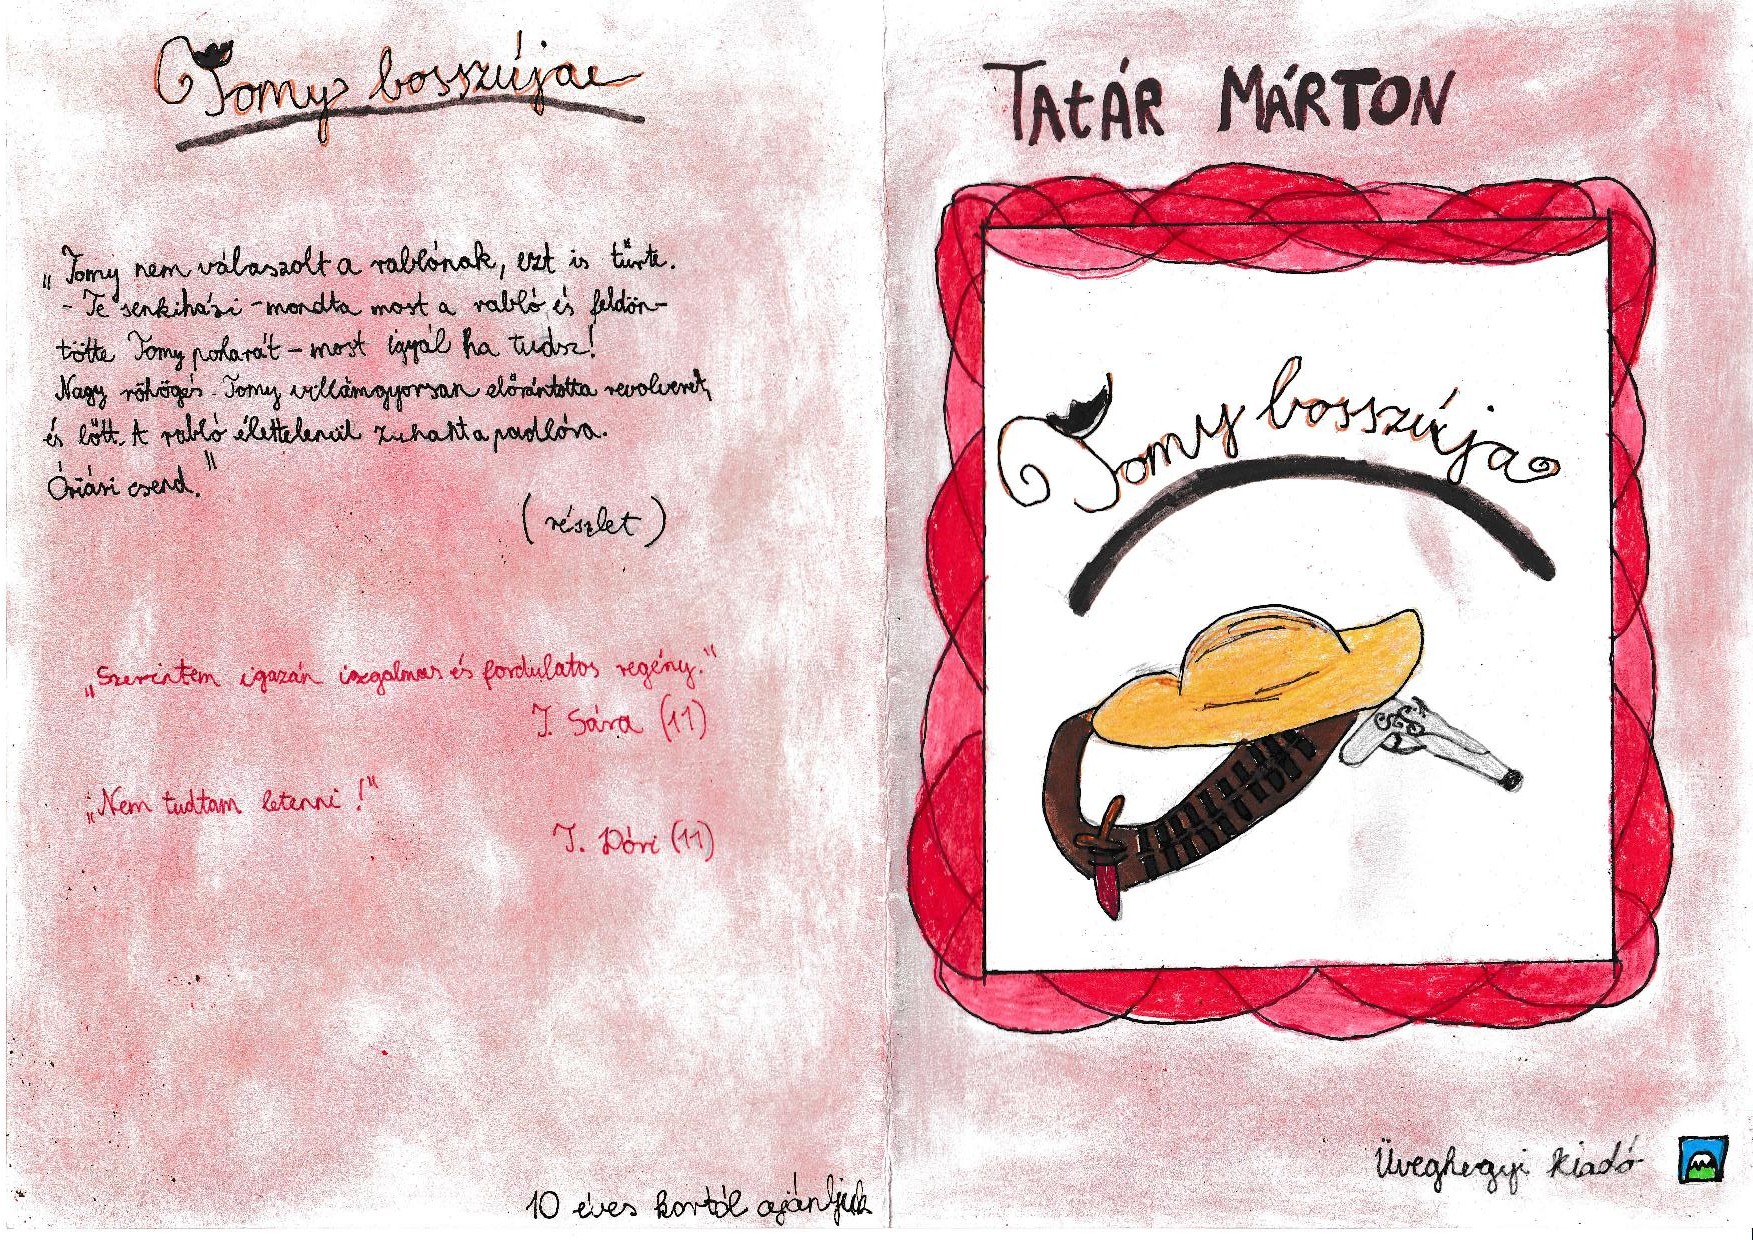 Tomy bosszúja
„Tomy nem válaszolt a rablónak, ezt is tűrte.
- Te senkiházi - mondta most a rabló és feldön-
tötte Tomy poharát - most igyál ha tudsz!
Nagy röhögés. Tomy villámgyorsan előrántotta revolverét,
és lőtt. A rabló élettelenül zuhant a padlóra.
Óriási csend."
(részlet)
„Szerintem igazán izgalmas és fordulatos regény."
J. Sára (11)
„Nem tudtam letenni!"
J. Dóri (11)
10 éves kortól ajánljuk
TAtÁR MÁRTON
Tomy bosszúja
Üveghegyi kiadó